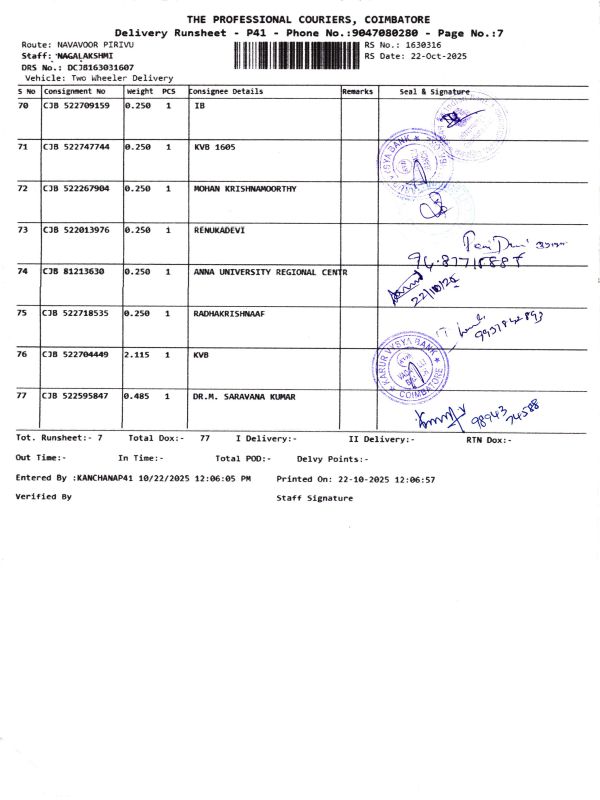 THE PROFESSIONAL COURIERS, COIMBATORE
Delivery Runsheet - P41 - Phone No.:9047080280 - Page No.:7
Route: NAVAVOOR PIRIVU RS No.: 1630316
Staff: NAGALAKSHMI RS Date: 22-Oct-2025
DRS No.: DCJ8163031607
Vehicle: Two Wheeler Delivery
S No Consignment No Weight PCS Consignee Details Remarks Seal & Signature
70 CJB 522709159 0.250 1 IB
71 CJB 522747744 0.250 1 KVB 1605
72 CJB 522267904 0.250 1 MOHAN KRISHNAMOORTHY
73 CJB 522013976 0.250 1 RENUKADEVI
74 CJB 81213630 0.250 1 ANNA UNIVERSITY REGIONAL CENTR
22/10/25
75 CJB 522718535 0.250 1 RADHAKRISHNAAF
76 CJB 522704449 2.115 1 KVB
KARUR VYSYA BANK
COIMBATORE
77 CJB 522595847 0.485 1 DR.M. SARAVANA KUMAR
98943 74588
Tot. Runsheet:- 7 Total Dox:- 77 I Delivery:- II Delivery:- RTN Dox:-
Out Time:- In Time:- Total POD:- Delvy Points:-
Entered By :KANCHANAP41 10/22/2025 12:06:05 PM Printed On: 22-10-2025 12:06:57
Verified By Staff Signature